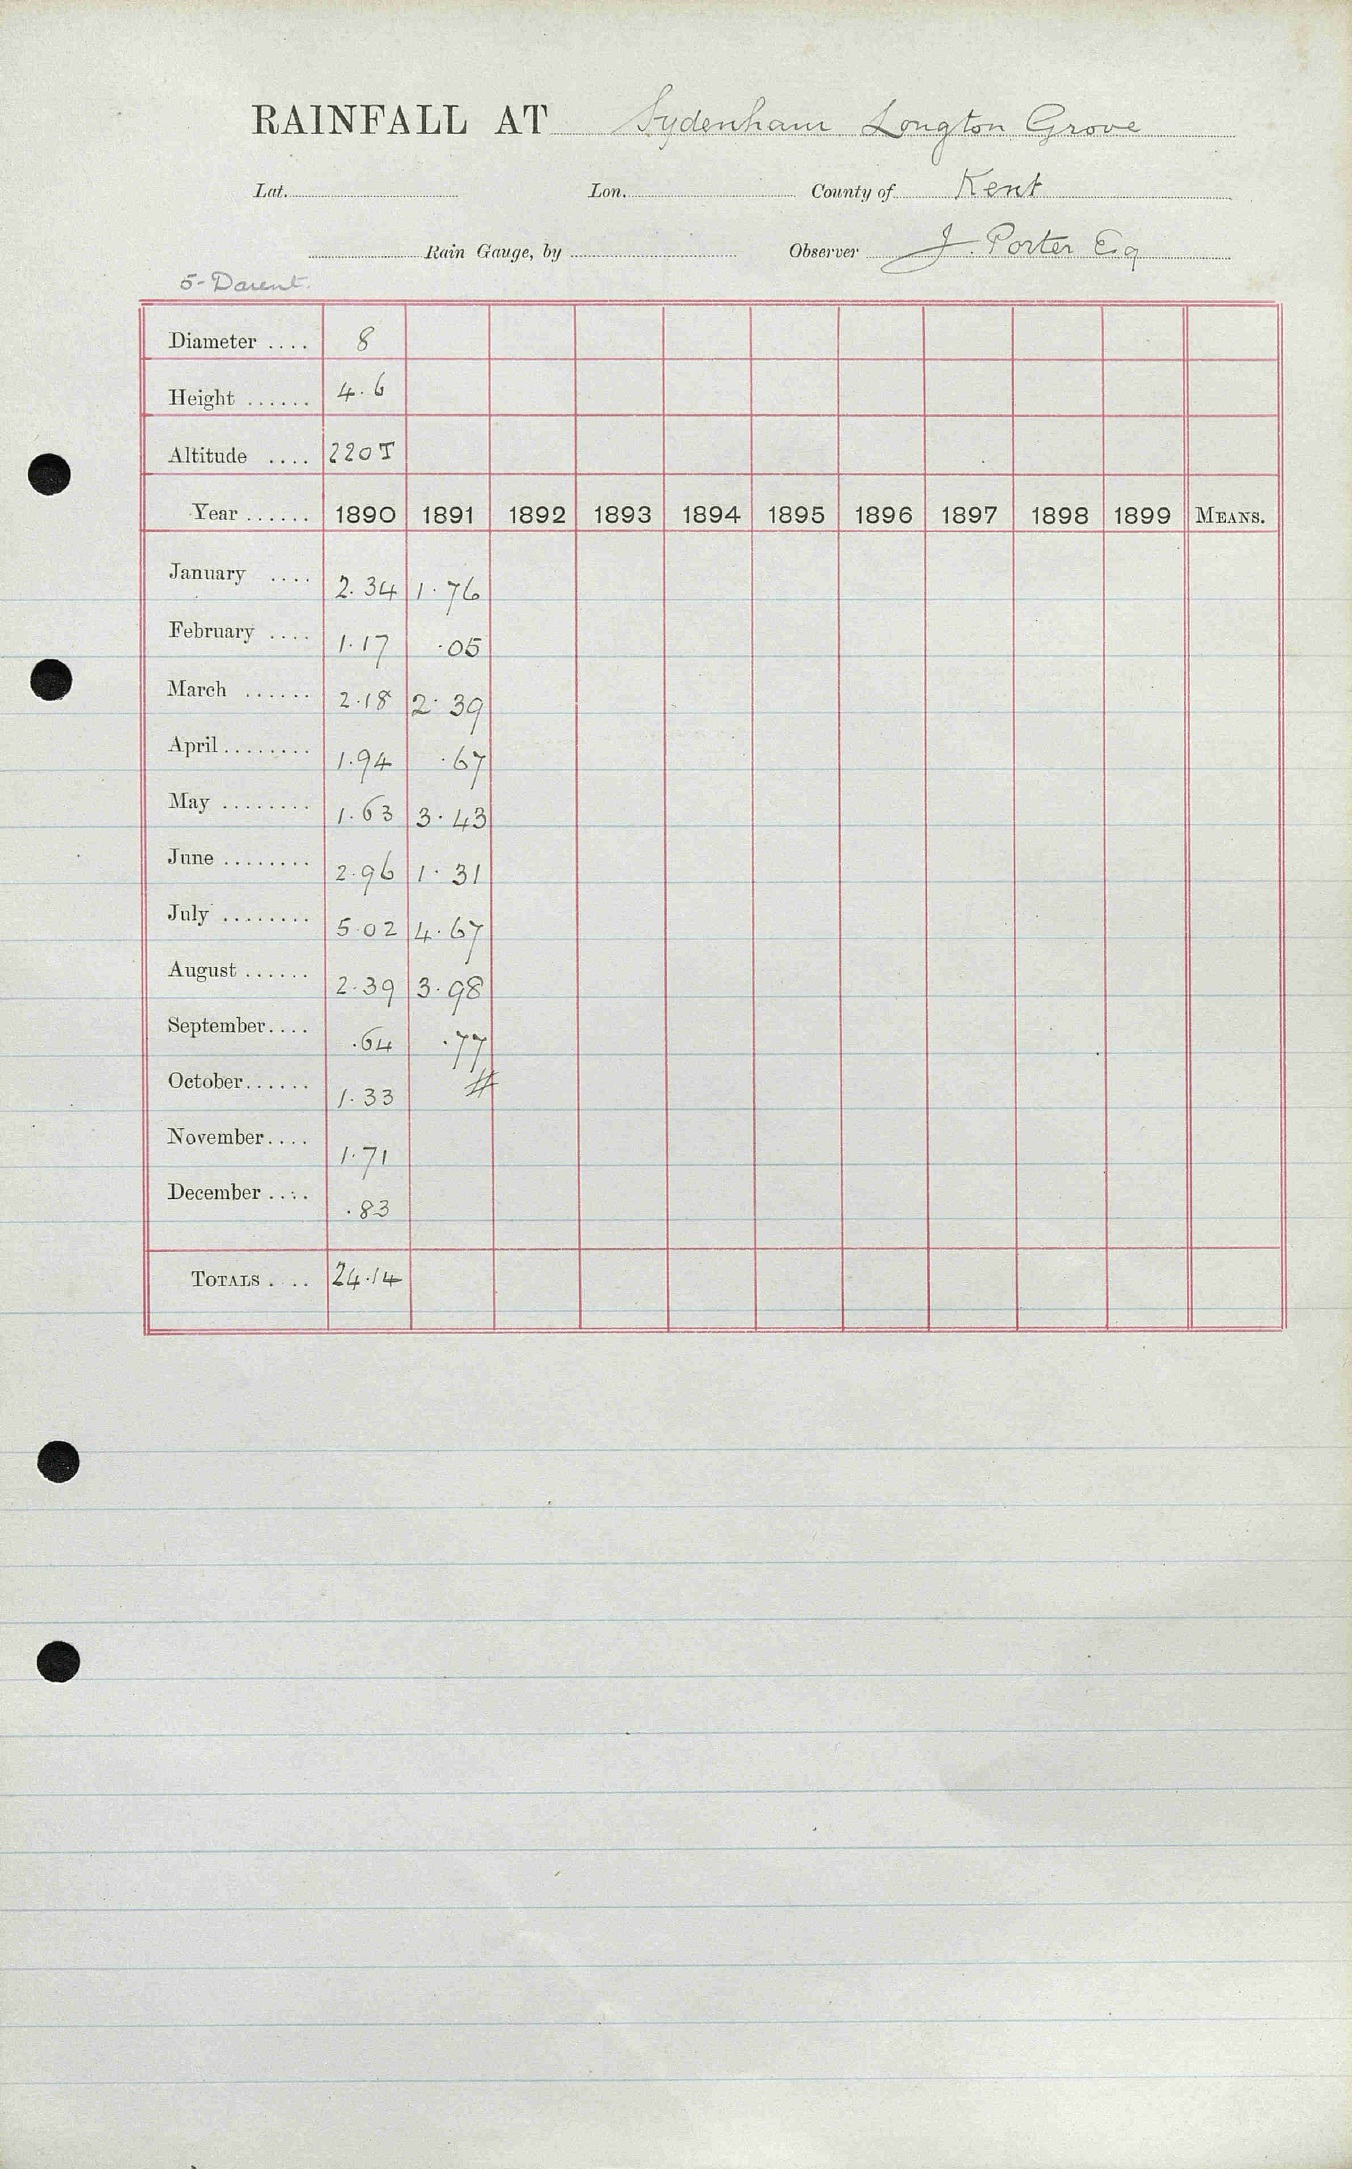 RAINFALL AT Sydenham Longton Grove
Lat. Lon. County of Kent
Rain Gauge, by Observer J. Porter Esq
5-Darent.
Diameter .... 8
Height ...... 4.6
Altitude .... 220T
Year ...... 1890 1891 1892 1893 1894 1895 1896 1897 1898 1899 MEANS.
January .... 2.34 1.76
February .... 1.17 .05
March ...... 2.18 2.39
April ........ 1.94 .67
May ........ 1.63 3.43
June ........ 2.96 1.31
July ........ 5.02 4.67
August ...... 2.39 3.98
September.... .64 .77
October...... 1.33 #
November.... 1.71
December .... .83
TOTALS .... 24.14